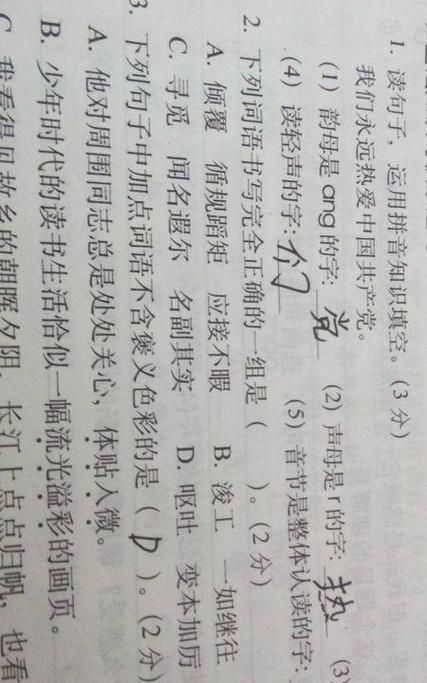 1. 读句子，运用拼音知识填空。(3分)
我们永远热爱中国共产党。
(1) 韵母是ang的字: 党 (2) 声母是r的字: 热 (3)
(4) 读轻声的字: 们 (5) 音节是整体认读的字:
2. 下列词语书写完全正确的一组是( )。(2分)
A. 倾覆 循规蹈矩 应接不暇 B. 浚工 一如继往
C. 寻觅 闻名遐尔 名副其实 D. 呕吐 变本加厉
3. 下列句子中加点词语不含褒义色彩的是( D )。(2分)
A. 他对周围同志总是处处关心，体贴入微。
B. 少年时代的读书生活恰似一幅流光溢彩的画页。
C 我看得见故乡的朝晖夕阴，长江上点点归帆，也看